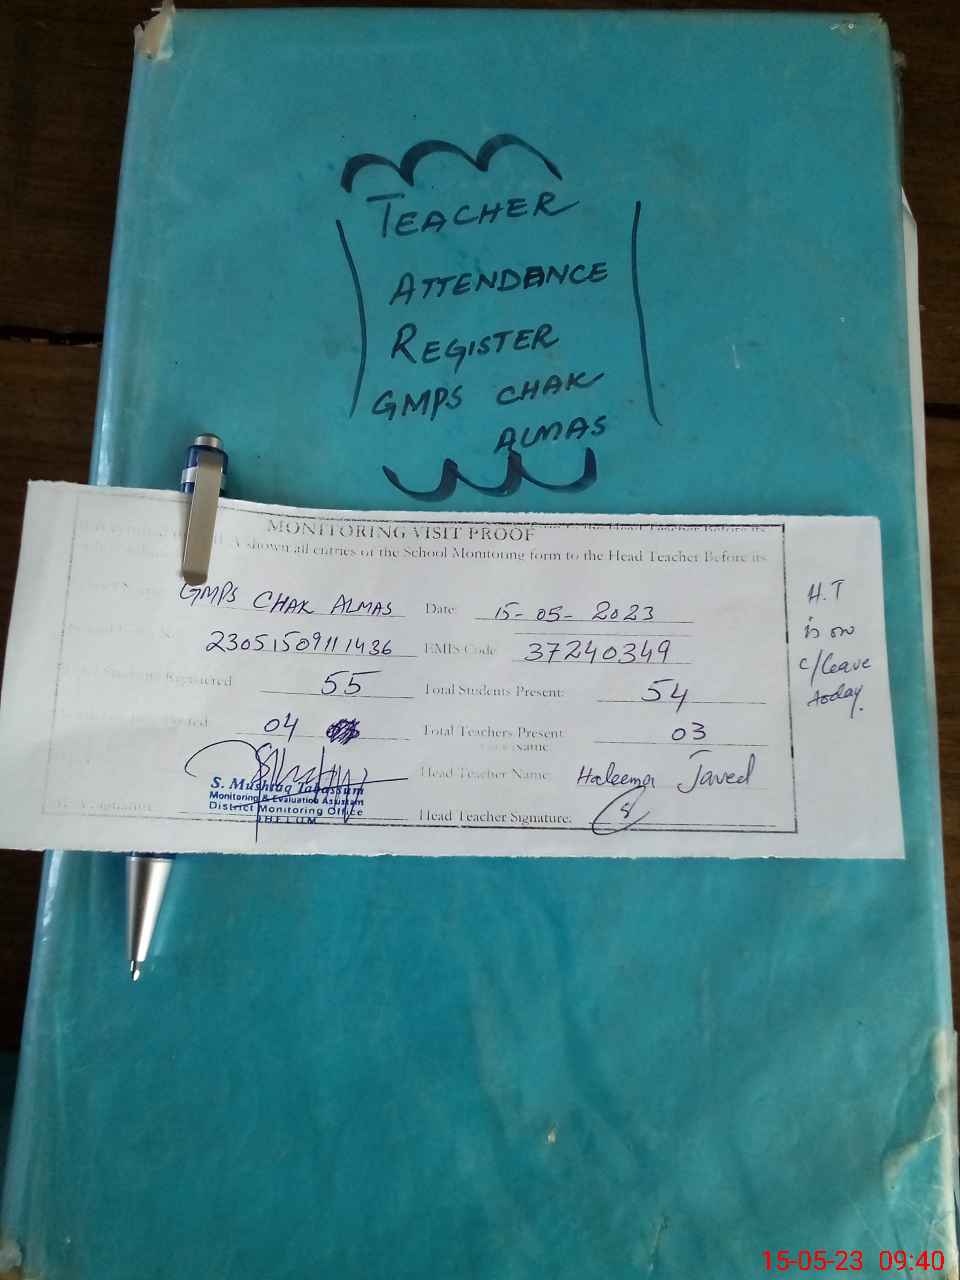 TEACHER
ATTENDANCE
REGISTER
GMPS CHAK
ALMAS
MONITORING VISIT PROOF
shown all entries of the School Monitoring form to the Head Teacher Before its
GMPS CHAK ALMAS Date: 15-05-2023
23051509111436 EMIS Code 37240349
Students Registered 55 Total Students Present: 54
04 Total Teachers Present 03
Name
Head Teacher Name: Haleema Javed
S. Mushtaq Tabassum
Monitoring & Evaluation Assistant
District Monitoring Office
JHELUM
Head Teacher Signature:
H.T
is on
c/leave
today.
15-05-23 09:40